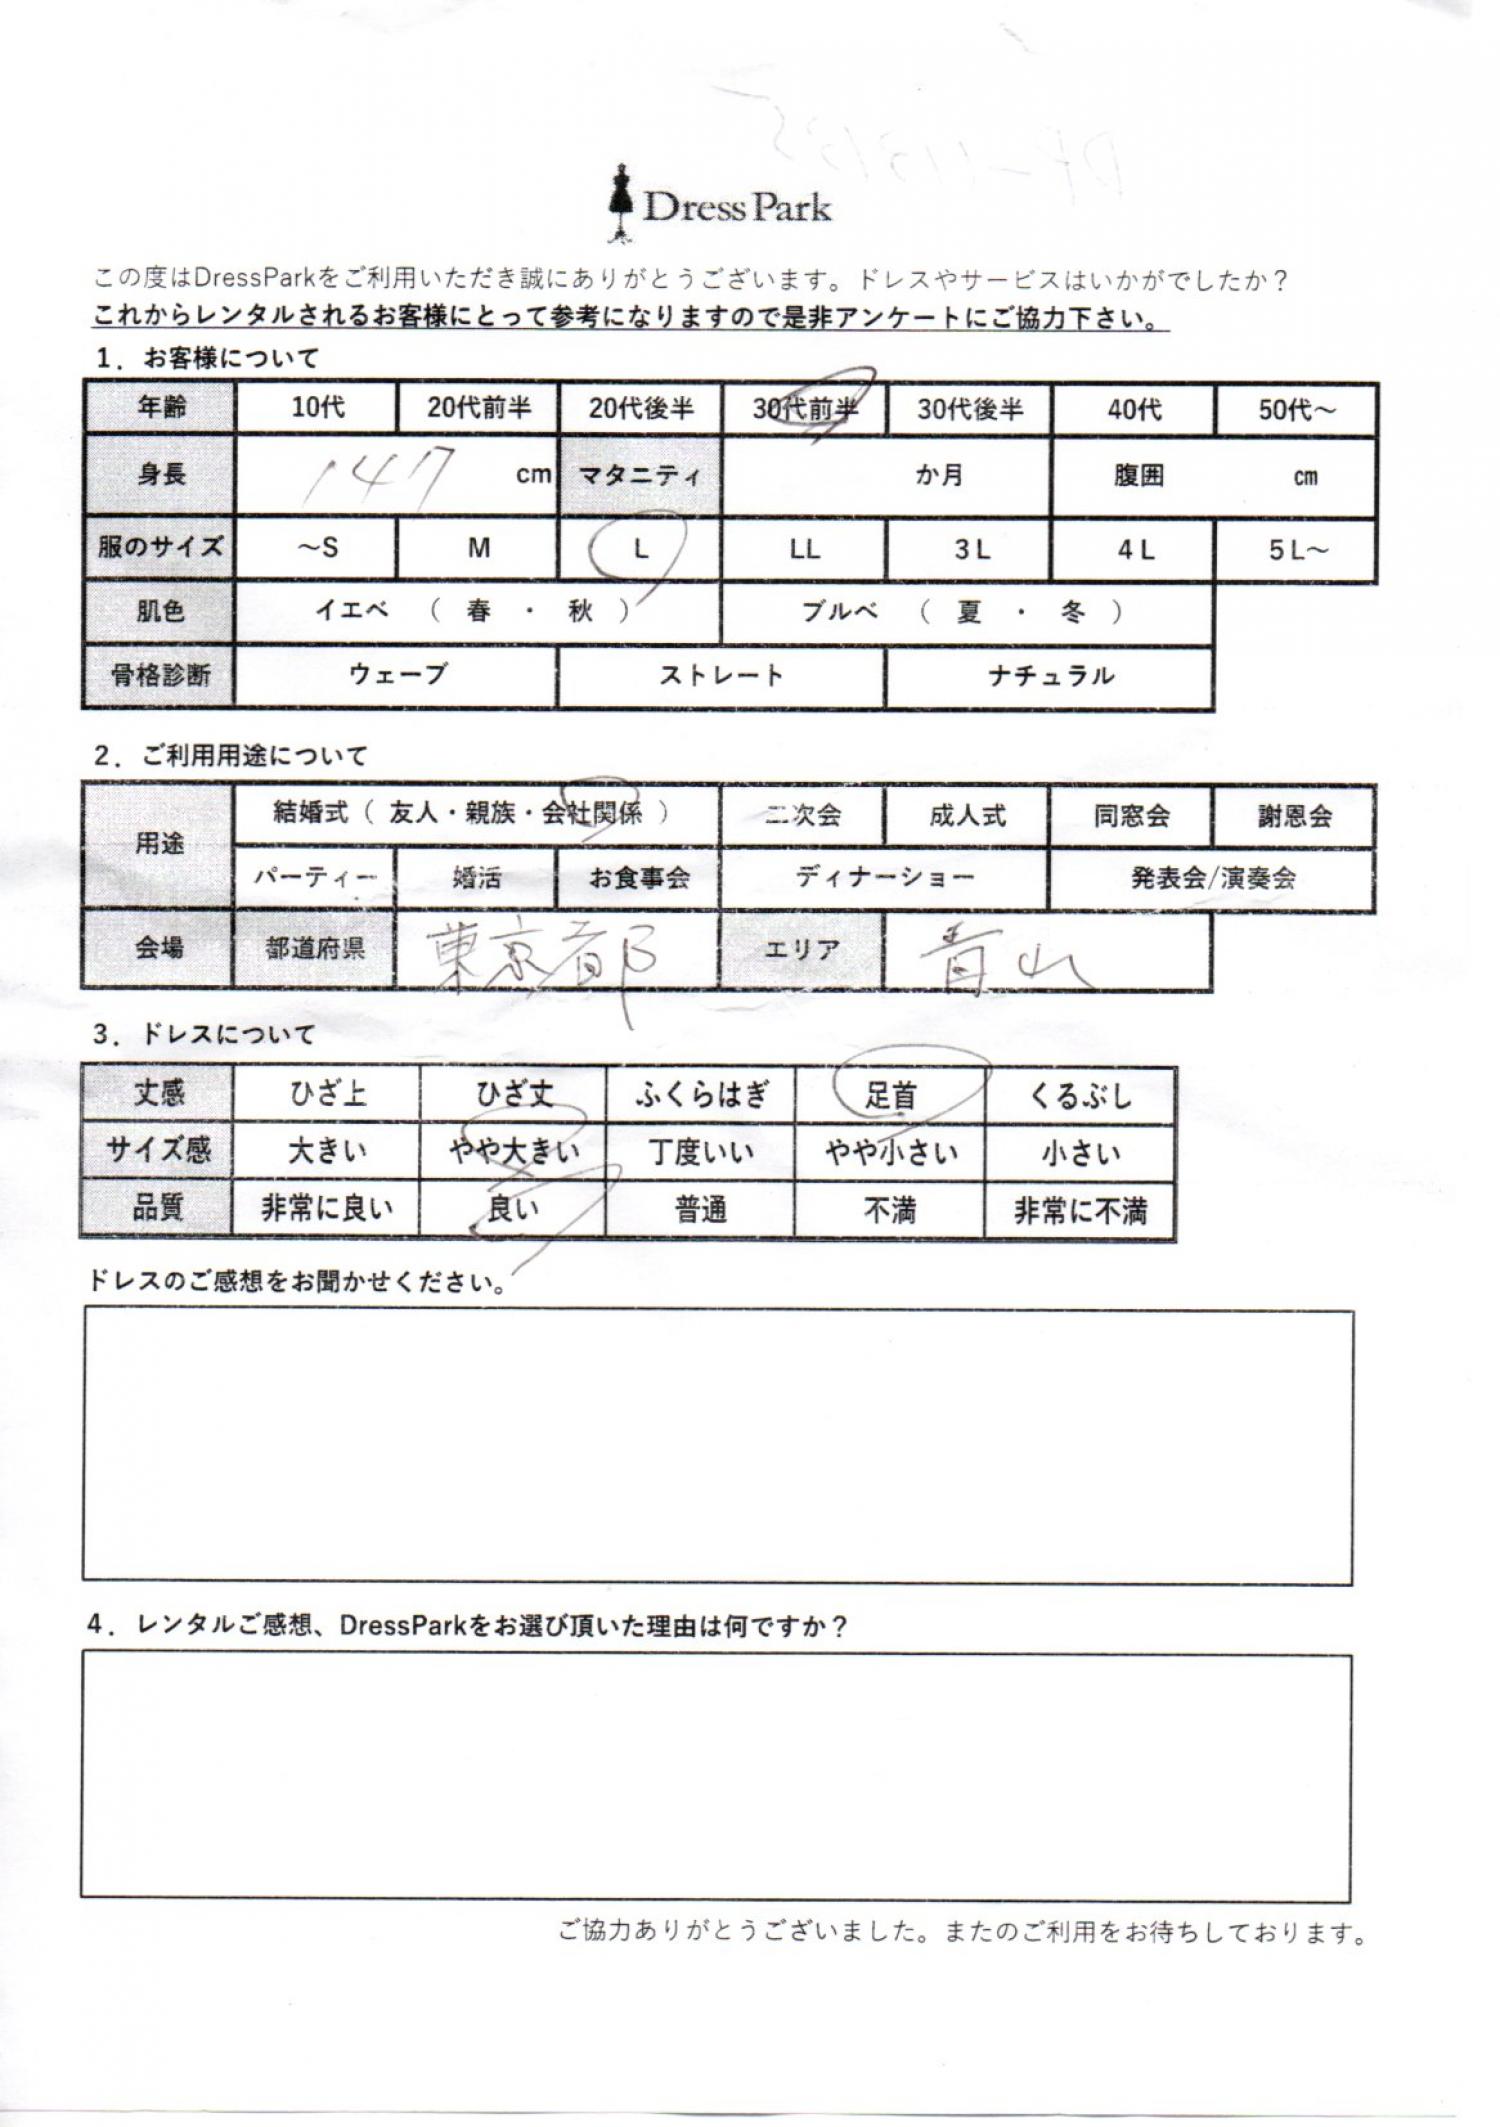 Dress Park
この度はDressParkをご利用いただき誠にありがとうございます。ドレスやサービスはいかがでしたか？
これからレンタルされるお客様にとって参考になりますので是非アンケートにご協力下さい。
1．お客様について
年齢 10代 20代前半 20代後半 30代前半 30代後半 40代 50代～
身長 147 cm マタニティ か月 腹囲 cm
服のサイズ ～S M L LL 3L 4L 5L～
肌色 イエベ （ 春 ・ 秋 ） ブルベ （ 夏 ・ 冬 ）
骨格診断 ウェーブ ストレート ナチュラル
2．ご利用用途について
用途 結婚式（ 友人・親族・会社関係 ） 二次会 成人式 同窓会 謝恩会
パーティー 婚活 お食事会 ディナーショー 発表会/演奏会
会場 都道府県 東京都 エリア 青山
3．ドレスについて
丈感 ひざ上 ひざ丈 ふくらはぎ 足首 くるぶし
サイズ感 大きい やや大きい 丁度いい やや小さい 小さい
品質 非常に良い 良い 普通 不満 非常に不満
ドレスのご感想をお聞かせください。
4．レンタルご感想、DressParkをお選び頂いた理由は何ですか？
ご協力ありがとうございました。またのご利用をお待ちしております。